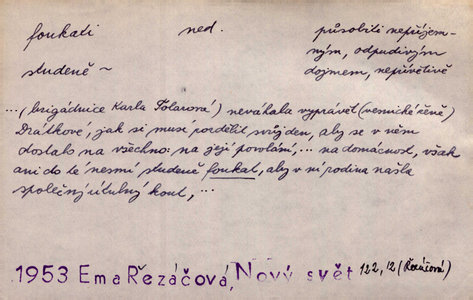 foukati ned. působiti nepříjem-
ným, odpudivým
studeně ~ dojmem, nepřívětivě
..., (brigádnice Karla Tolarová) neváhala vyprávět (vesnické ženě)
Drátkové, jak si musí rozdělit svůj den, aby se v něm
dostalo na všechno: na její povolání, ... na domácnost, však
ani do té nesmí studeně foukat, aby v ní rodina našla
společný útulný kout, ...
1953 Ema Řezáčová, Nový svět 122, 12 (Řezáčová)